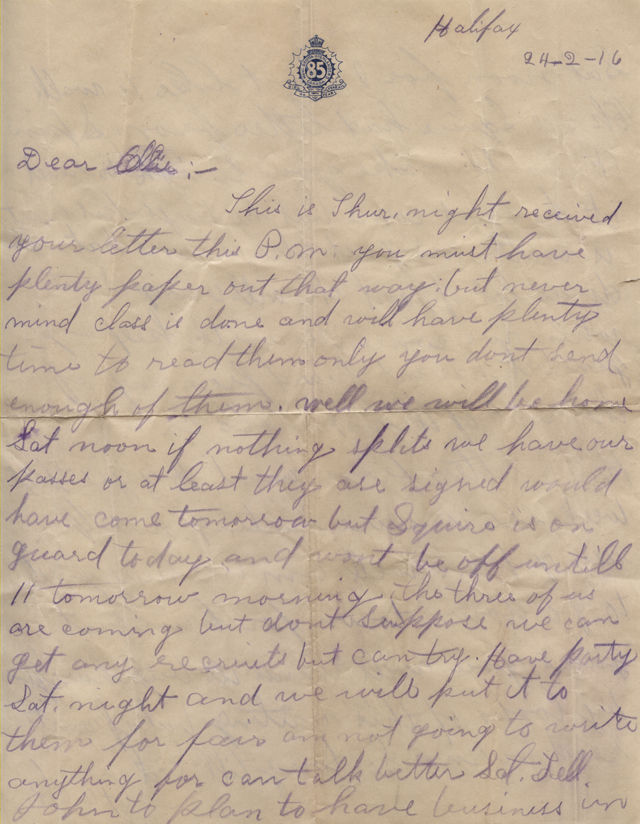 Halifax
24-2-16
85
Dear Ollie :-
This is Thur. night received
your letter this P.M. you must have
plenty paper out that way; but never
mind class is done and will have plenty
time to read them only you dont send
enough of them. well we will be home
Sat noon if nothing splits we have our
passes or at least they are signed would
have come tomorrow but Squire is on
guard today and wont be off untill
11 tomorrow morning the three of us
are coming but dont suppose we can
get any recruits but can try. Have party
Sat. night and we will put it to
them for fair am not going to write
anything for can talk better Sat. Tell
John to plan to have business in